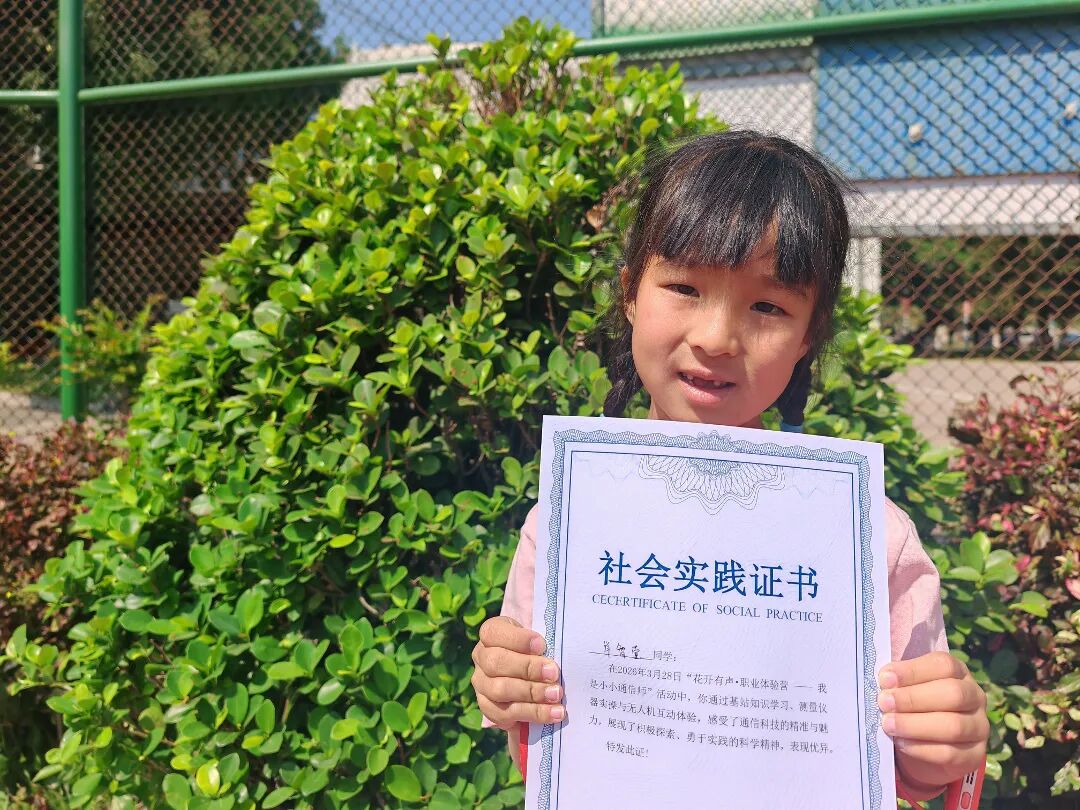 社会实践证书
CECERTIFICATE OF SOCIAL PRACTICE
同学:
在2026年3月28日“花开有声·职业体验营 —— 我
是小小通信师”活动中，你通过基站知识学习、测量仪
器实操与无人机互动体验，感受了通信科技的精准与魅
力，展现了积极探索、勇于实践的科学精神，表现优异。
特发此证!